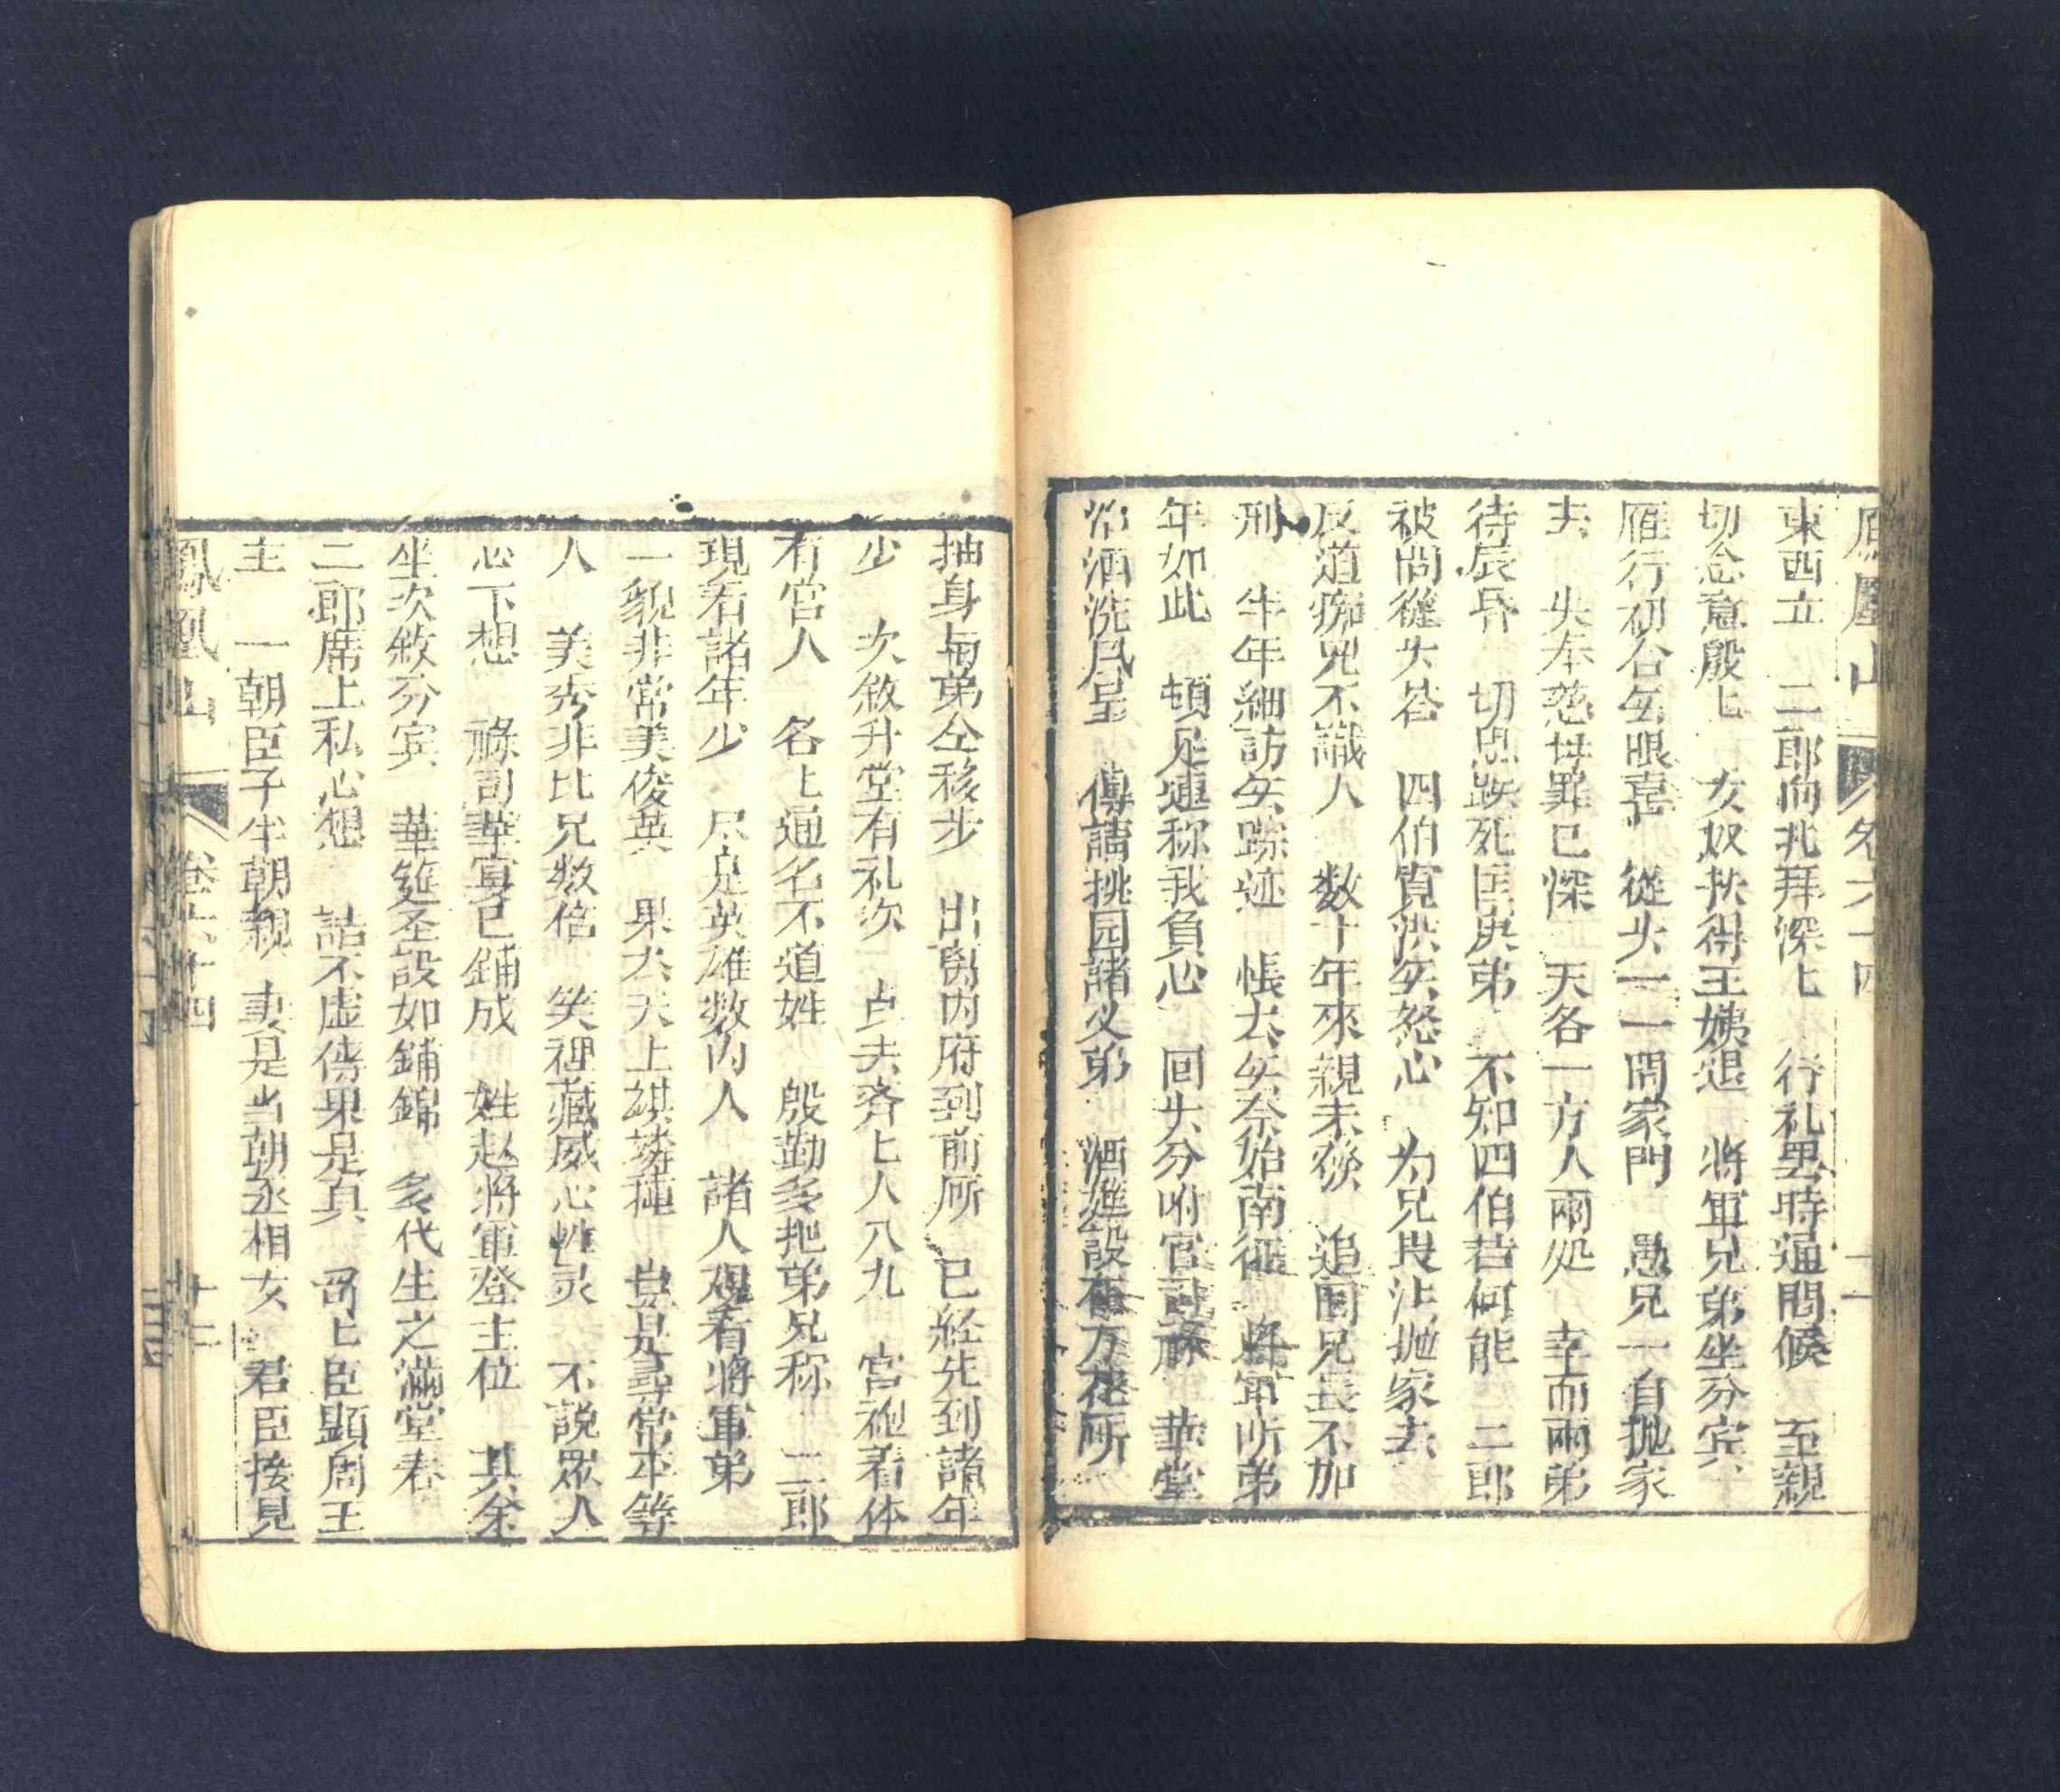 東西立　二郎向北拜深匕　行礼畢時通問候　至親
切念意殷匕　女奴扶得王姨退　將軍兄弟坐分宾
雁行初合矣眼喜　從头一一問家門　愚兄一自抛家
去　失奉慈母罪已深　天各一方人兩処　幸而兩弟
待辰昏　切思跌死囯庚弟　不知四伯若何能　二郎
被問從头荅　四伯寬洪矣怒心　为兄畏法抛家去
反道痴兄不識人　数十年來親未殡　追囬兄長不加
刑　半年細訪矣踪迹　悵去矣奈始南征　將軍听弟
年如此　頓足連称我負心　回头分咐官司稼　華堂
治酒洗风呈　傳請挑园諸义弟　酒進設在万花所
抽身与弟仝移步　出窮内府到前所　已経先到諸年
少　次敘升堂有礼次　占夫齐匕人八九　宮袍着体
有官人　名匕通名不道姓　殷勤多把弟兄称　二郎
現看諸年少　尽是英雄数内人　諸人覌看將軍弟
一貌非常美俊英　果太天上祺璘種　豈是尋常本等
人　美秀非比兄数倍　笑裡藏威心性灵　不說眾人
心下想　稼司華宴已鋪成　姓赵將軍登主位　其余
坐次敘分宾　華筵圣設如鋪錦　多代生之滿堂春
二郎席上私心想　話不虛傳果是真　哥匕臣顕周王
主　一朝臣子半朝親　妻是当朝丞相女　君臣接見
鳳凰山　卷六十四　十二